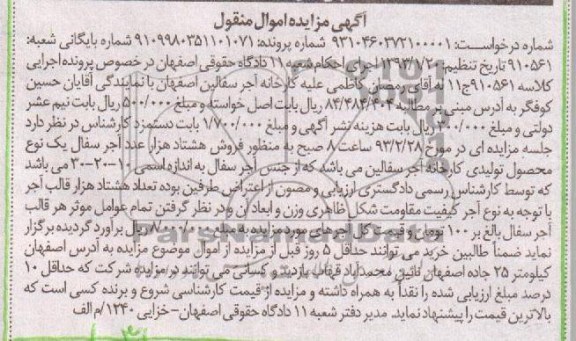 آگهی مزایده اموال منقول
شماره درخواست: ۹۳۱۰۴۶۰۳۷۲۱۰۰۰۰۱ شماره پرونده: ۹۱۰۹۹۸۰۳۵۱۱۰۱۰۷۱ شماره بایگانی شعبه:
۹۱۰۵۶۱ تاریخ تنظیم: ۱۳۹۳/۱/۲۰ اجرای احکام شعبه ۱۱ دادگاه حقوقی اصفهان در خصوص پرونده اجرایی
کلاسه ۹۱۰۵۶۱ ج۱۱ له آقای رمضان کاظمی علیه کارخانه آجر سفالین اصفهان با نمایندگی آقایان حسین
کوفگر به آدرس مبنی بر مطالبه ۸۴/۴۸۳/۴۰۴ ریال بابت اصل خواسته و مبلغ ۵۰۰/۰۰۰ ریال بابت نیم عشر
دولتی و مبلغ ۳۰۰/۰۰۰ ریال بابت هزینه نشر آگهی و مبلغ ۱/۷۰۰/۰۰۰ بابت دستمزد کارشناس در نظر دارد
جلسه مزایده ای در مورخ ۹۳/۲/۲۸ ساعت ۸ صبح به منظور فروش هشتاد هزار عدد آجر سفال یک نوع
محصول تولیدی کارخانه آجر سفالین می باشد که از جنس آجر سفال به اندازه اسمی ۱۰-۲۰-۳۰ می باشد
که توسط کارشناس رسمی دادگستری ارزیابی و مصون از اعتراض طرفین بوده تعداد هشتاد هزار قالب آجر
با توجه به نوع آجر کیفیت مقاومت شکل ظاهری وزن و ابعاد آن و در نظر گرفتن تمام عوامل موثر هر قالب
آجر سفال بالغ بر ۱۰۰ تومان و قیمت کل آجرهای مورد مزایده به مبلغ ریال برآورد گردیده برگزار
نماید ضمناً طالبین خرید می توانند حداقل ۵ روز قبل از مزایده از اموال موضوع مزایده به آدرس اصفهان
کیلومتر ۲۵ جاده اصفهان نائین محمدآباد بازدید و کسانی می توانند در مزایده شرکت که حداقل ۱۰
درصد مبلغ ارزیابی شده را نقداً به همراه داشته و مزایده از قیمت کارشناسی شروع و برنده کسی است که
بالاترین قیمت را پیشنهاد نماید. مدیر دفتر شعبه ۱۱ دادگاه حقوقی اصفهان-خزایی ۱۲۴۰/م الف